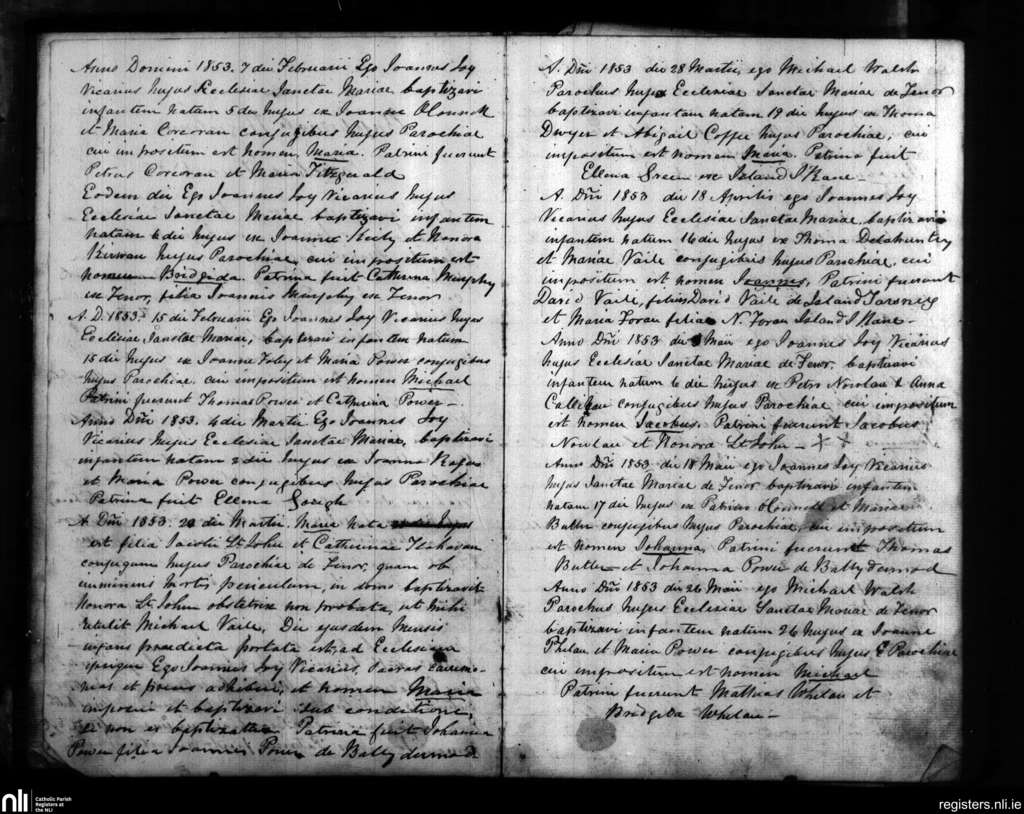 Anno Domini 1853. 7 die Februarii Ego Joannes Joy
Vicarius hujus Ecclesiae Sanctae Mariae baptizavi
infantem natam 5 die hujus ex Joanne
et Maria Corcoran conjugibus hujus Parochiae
cui impositum est nomen Maria. Patrini fuerunt
Petrus Corcoran et Maria Fitzgerald
Eodem die Ego Joannes Joy Vicarius hujus
Ecclesiae Sanctae Mariae baptizavi infantem
natam 4 die hujus ex Joanne et Honora
Kirwan hujus Parochiae, cui impositum est
nomen Bridgida. Patrina fuit Catherina Murphy
ex Fenor, filia Joannis Murphy ex Fenor
A. D. 1853. 15 die Februarii Ego Joannes Joy Vicarius hujus
Ecclesiae Sanctae Mariae, baptizavi infantem natum
15 die hujus ex Joanne Foley et Maria Power conjugibus
hujus Parochiae cui impositum est nomen Michael
Patrini fuerunt Thomas Power et Catherina Power –
Anno Dñi 1853. 4 die Martii Ego Joannes Joy
Vicarius hujus Ecclesiae Sanctae Mariae, baptizavi
infantem natam 2 die hujus ex Joanne
et Maria Power conjugibus hujus Parochiae
Patrina fuit Ellena Gough
A Dñi 1853. die Martii. Maria nata
est filia Jacobi St John et Catherinae
conjugum hujus Parochiae de Fenor, quam ob
imminens mortis periculum, in domo baptizavit
Honora St John obstetrix non probata, ut mihi
retulit Michael Vaile. Die ejusdem Mensis
infans praedicta portata est ad Ecclesiam
ipsique Ego Joannes Joy Vicarius, sacras caeremo-
nias et preces adhibui, et nomen Maria
imposui et baptizavi sub conditione,
si non es baptizata Patrina fuit Johanna
Power filia Joannis Power de Ballydermod
A. Dñi 1853 die 28 Martii, ego Michael Walsh
Parochus hujus Ecclesiae Sanctae Mariae de Fenor
baptizavi infantem natam 19 die hujus ex Thoma
Dwyer et Abigail Coffee hujus Parochiae, cui
impositum est nomen Maria. Patrina fuit
Ellena Green ex Island I'Kane –
A. Dñi 1853 die 18 Aprilis ego Joannes Joy
Vicarius hujus Ecclesiae Sanctae Mariae, baptizavi
infantem natum 16 die hujus ex Thoma Delahuntey
et Mariae Vaile conjugibus hujus Parochiae, cui
impositum est nomen Joannes, Patrini fuerunt
David Vaile, filius David Vaile de Island Tarsney
et Maria Foran filia N. Foran Island I Kane –
Anno Dñi 1853 die Maii ego Joannes Joy Vicarius
hujus Ecclesiae Sanctae Mariae de Fenor, baptizavi
infantem natum 6 die hujus ex Petro Nowlan & Anna
Callihan conjugibus hujus Parochiae cui impositum
est nomen Jacobus. Patrini fuerunt Jacobus
Nowlan et Honora St John –
Anno Dñi 1853 die 18 Maii ego Joannes Joy Vicarius
hujus Sanctae Mariae de Fenor baptizavi infantem
natam 17 die hujus ex Patricio O'Connell et Mariae
Butler conjugibus hujus Parochiae, cui impositum
est nomen Johanna, Patrini fuerunt Thomas
Butler et Johanna Power de Ballydermod
Anno Dñi 1853 die 26 Maii ego Michael Walsh
Parochus hujus Ecclesiae Sanctae Mariae de Fenor
baptizavi infantem natum 26 hujus ex Joanne
Phelan et Maria Power conjugibus hujus Parochiae
cui impositum est nomen Michael
Patrini fuerunt Mathias Whelan et
Bridgeta Whelan –
nli
Catholic Parish
Registers at
the NLI
registers.nli.ie